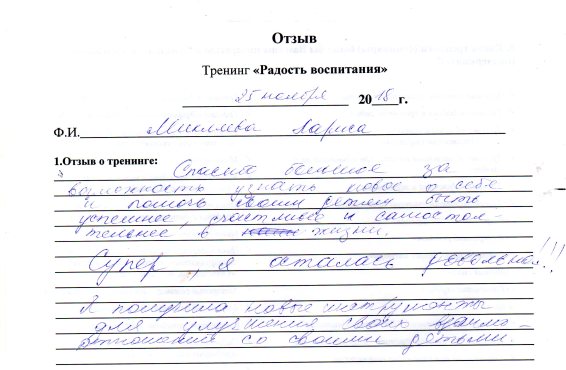 Отзыв
Тренинг «Радость воспитания»
25 ноября 2015 г.
Ф.И. Миклиева Лариса
1.Отзыв о тренинге: Спасибо большое за
возможность узнать новое о себе
и помочь своим детям быть
успешнее, счастливее и самостоя-
тельнее в жизни.
Супер, я осталась довольная!!!
Я получила новые инструменты
для улучшения своих взаимо-
отношений со своими детьми.